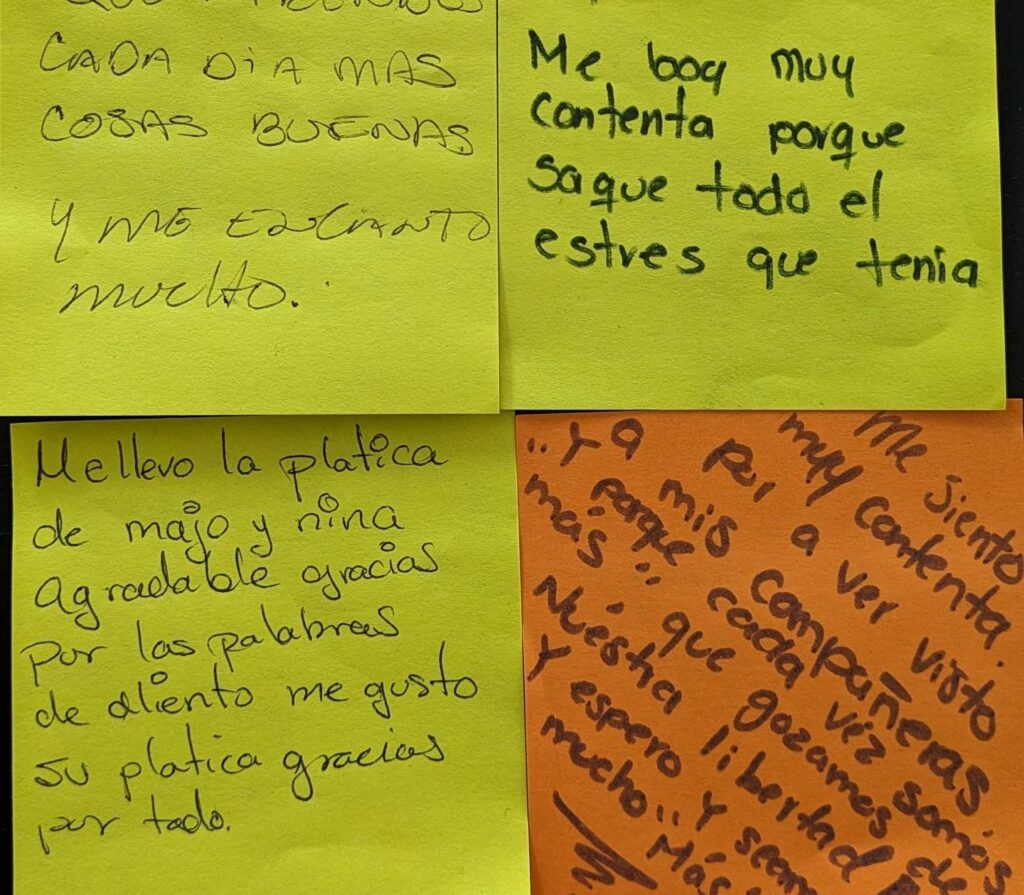 CADA DiA MAS
COSAS BUENAS
Y ME ENCANTO
mucho.
Me boy muy
contenta porque
saque todo el
estres que tenia
Me llevo la platica
de majo y nina
Agradable gracias
por las palabras
de aliento me gusto
su platica gracias
por todo.
Me siento
muy contenta.
por a ver visto
..Y a mis compuñeras.
porque cada véz somós
más.. que gozamos de
Nuéstra libertad
Y espero Y sean
mucho.. Más